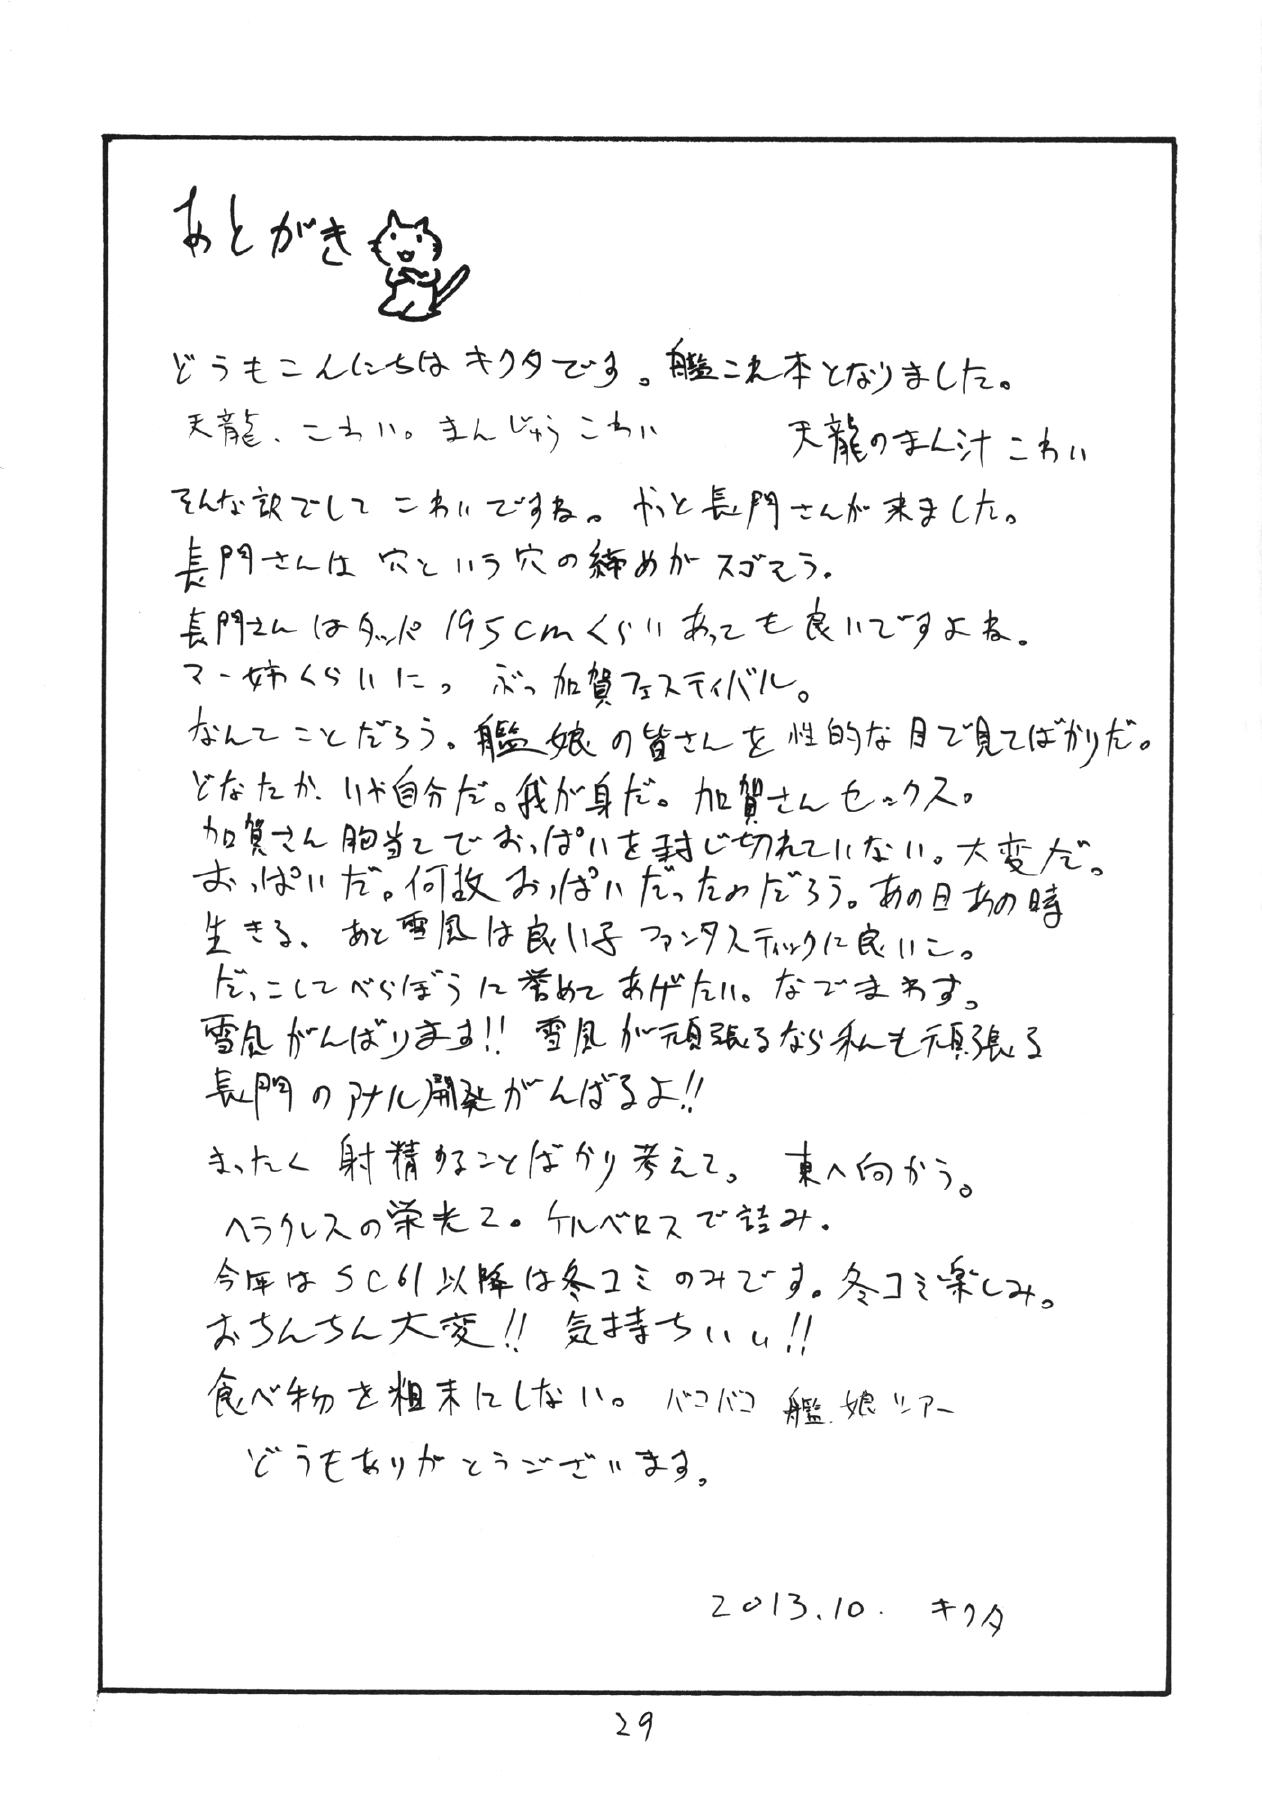 あとがき
どうもこんにちはキクタです。艦これ本となりました。
天龍、こわい。まんじゅうこわい 天龍のまん汁こわい
そんな訳でして こわいですね。やっと長門さんが来ました。
長門さんは 穴という穴の締めがスゴそう。
長門さんはタッパ195cmくらいあっても良いですよね。
マー姉くらいに。 ぶっ加賀フェスティバル。
なんてことだろう。艦娘の皆さんを性的な目で見てばかりだ。
どなたか、いや自分だ。我が身だ。加賀さんセックス。
加賀さん胸当てでおっぱいを封じ切れていない。大変だ。
おっぱいだ。何故おっぱいだったのだろう。あの日あの時
生きる、あと雪風は良い子ファンタスティックに良いこ。
だっこしてべらぼうに誉めてあげたい。なでまわす。
雪風がんばります!! 雪風が頑張るなら私も頑張る
長門のアナル開発がんばるよ!!
まったく射精することばかり考えて。 東へ向かう。
ヘラクレスの栄光2。ケルベロスで詰み。
今年はSC61以降は冬コミのみです。冬コミ楽しみ。
おちんちん大変!! 気持ちいい!!
食べ物を粗末にしない。 バコバコ 艦娘ツアー
どうもありがとうございます。
2013.10. キクタ
29